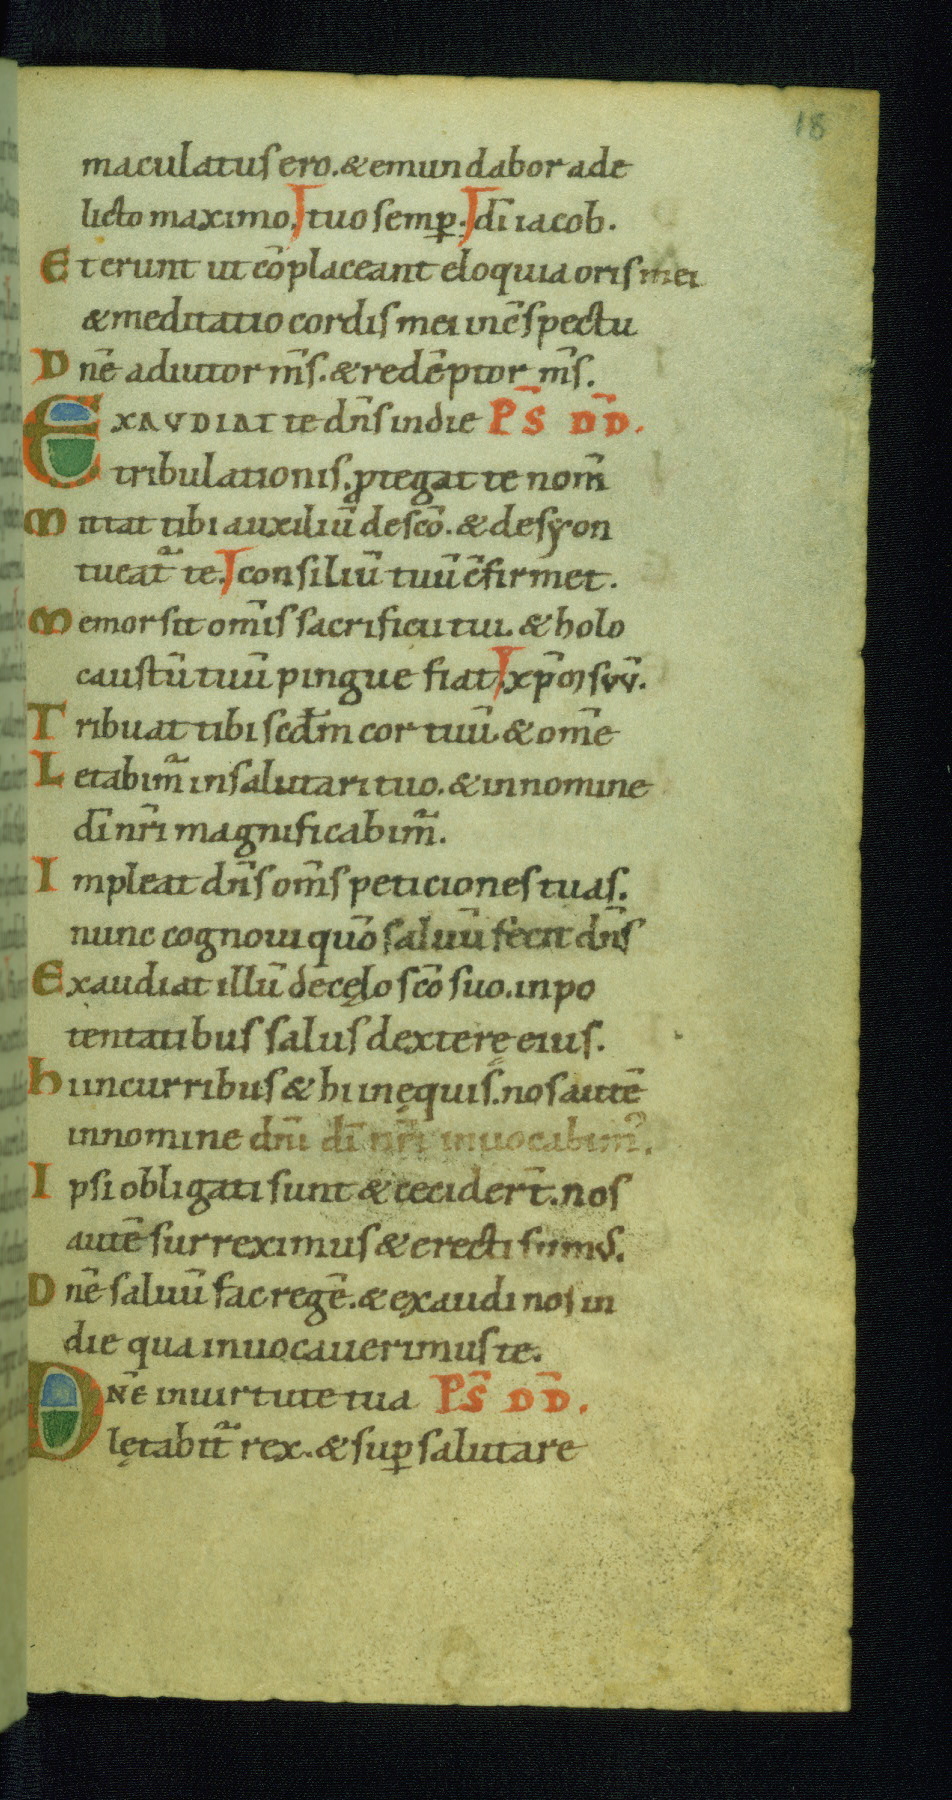 18
maculatus ero. & emundabor ade
licto maximo. tuo semꝑ. dī iacob.
Et erunt ut cōplaceant eloquia oris mei
& meditatio cordis mei inc̄spectu
Dnē adiutor m̄s. & redēptor m̄s.
EXAVDIAT te dn̄s indie PS̄ DD̄.
tribulationis. ꝓtegat te nom̄
Mittat tibi auxiliū desc̄o. & desẏon
tueat᷑ te. consiliū tuū c̄firmet.
Memor sit om̄is sacrificii tui. & holo
caustū tuū pingue fiat. xp̄m suū.
Tribuat tibi scd̄m cor tuū. & om̄e
Letabim᷑ insalutari tuo. & innomine
dī nr̄i magnificabim᷑.
Impleat dn̄s om̄s peticiones tuas.
nunc cognoui quō saluū fecit dn̄s
Exaudiat illū decęlo sc̄o suo. inpo
tentatibus salus dexterę eius.
hiincurribus & hi inęquis. nos autē
innomine dn̄i dī nr̄i inuocabim᷑.
Ipsi obligati sunt & cecider̄t. nos
autē surreximus & erecti sumus.
Dnē saluū fac regē. & exaudi nos in
die qua inuocauerimus te.
DN̄E inuirtute tua PS̄ DD̄.
lętabit᷑ rex. & suꝑ salutare